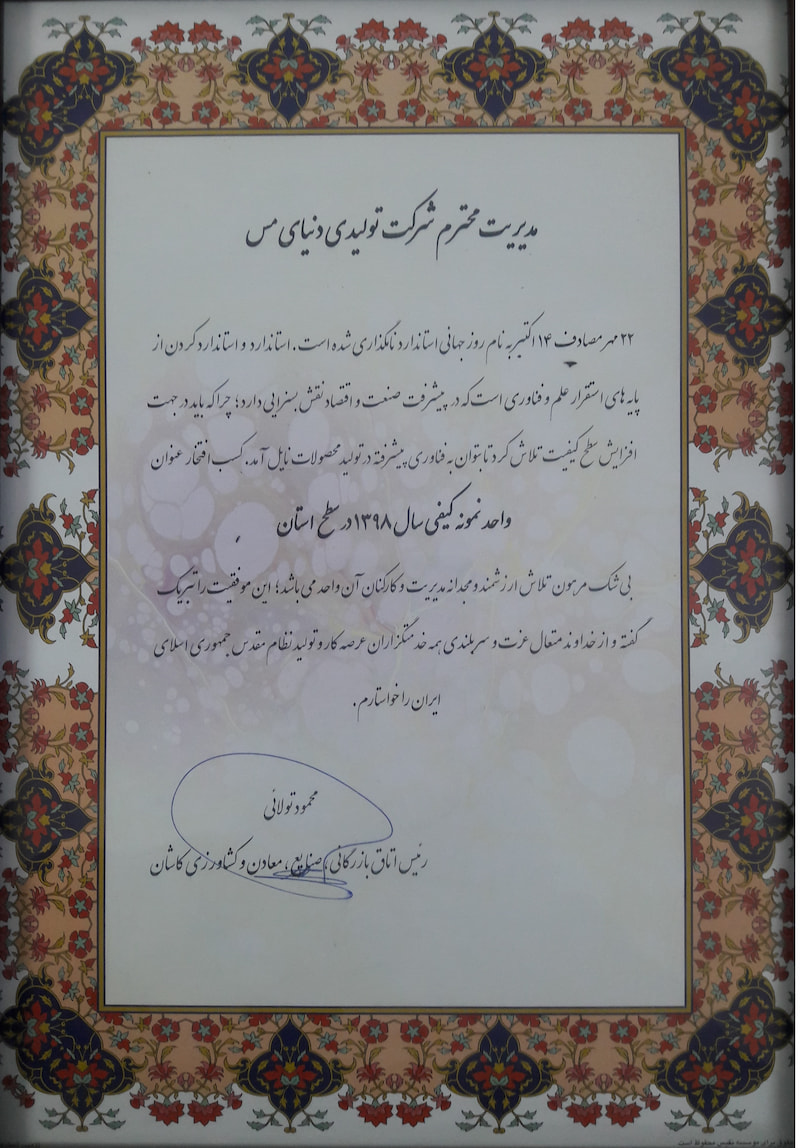 مدیریت محترم شرکت تولیدی دنیای مس
۲۲ مهر مصادف ۱۴ اکتبر به نام روز جهانی استاندارد نامگذاری شده است. استاندارد و استاندارد کردن از
پایه های استقرار علم و فناوری است که در پیشرفت صنعت و اقتصاد نقش بسزایی دارد؛ چرا که باید در جهت
افزایش سطح کیفیت تلاش کرد تا بتوان به فناوری پیشرفته در تولید محصولات نایل آمد. کسب افتخار عنوان
واحد نمونه کیفی سال ۱۳۹۸ در سطح استان
بی شک مرهون تلاش ارزشمند و مجدانه مدیریت و کارکنان آن واحد می باشد؛ این موفقیت را تبریک
گفته و از خداوند متعال عزت و سربلندی همه خدمتگزاران عرصه کار و تولید نظام مقدس جمهوری اسلامی
ایران را خواستارم.
محمود تولائی
رئیس اتاق بازرگانی، صنایع، معادن و کشاورزی کاشان
برای موسسه نفیس محفوظ است